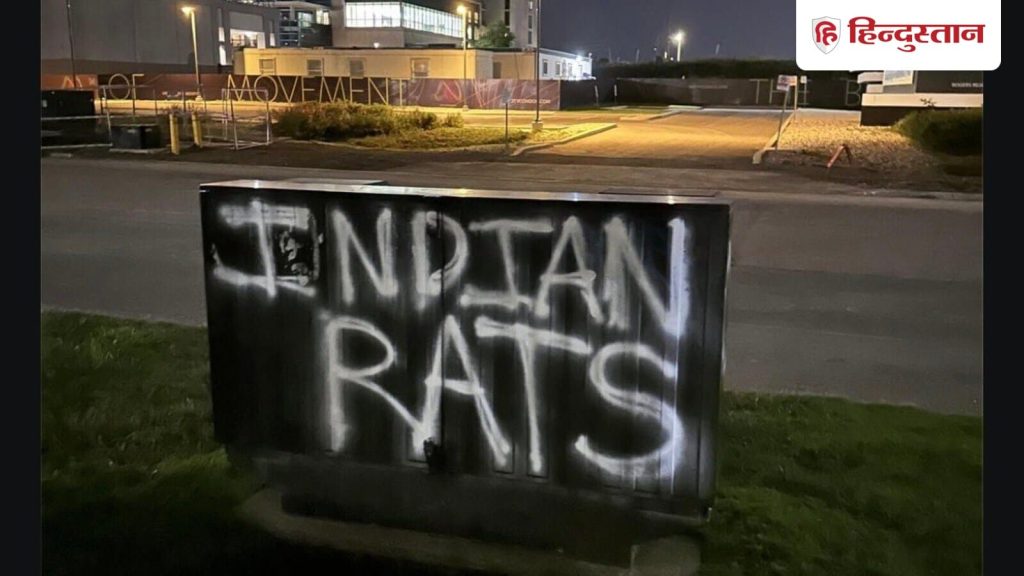 हिन्दुस्तान
OF MOVEMENT
INDIAN
RATS